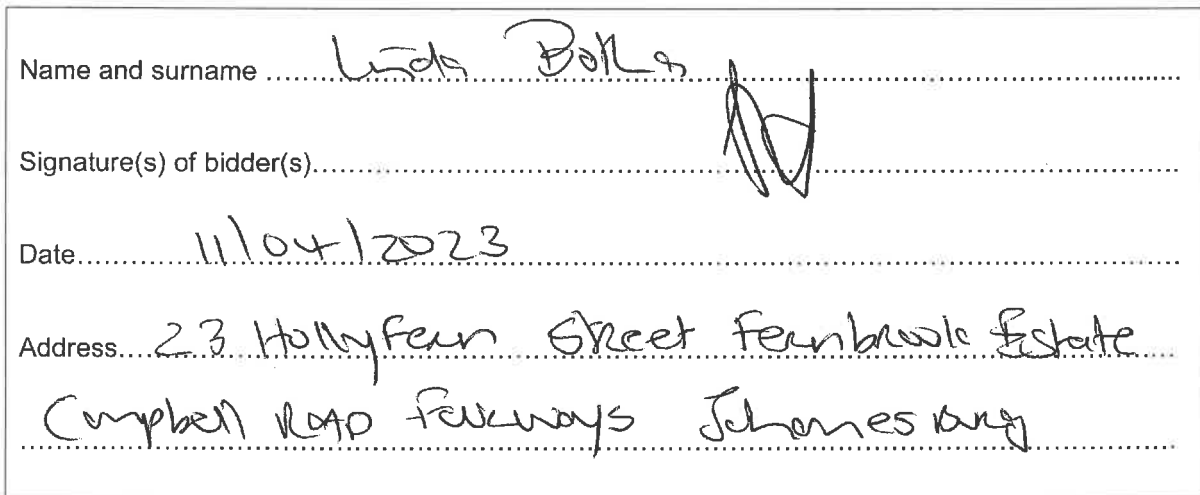 Name and surname ........ Linda Botha
Signature(s) of bidder(s)........
Date........ 11/04/2023
Address.... 23 Hollyfern Street Fernbrook Estate
Campbell ROAD Fourways Johannesburg